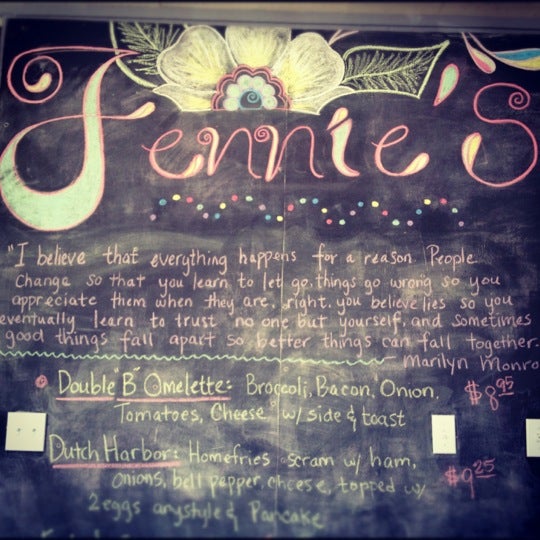 Jennie's
"I believe that everything happens for a reason. People
Change so that you learn to let go, things go wrong so you
appreciate them when they are right, you believe lies so you
eventually learn to trust no one but yourself, and sometimes
good things fall apart so better things can fall together.
Marilyn Monro
Double "B" Omelette: Broccoli, Bacon, Onion, $8.95
Tomatoes, Cheese w/ side & toast
Dutch Harbor: Homefries scram w/ ham, $9.25
Onions, bell pepper, cheese, topped w/
2eggs anystyle & Pancake